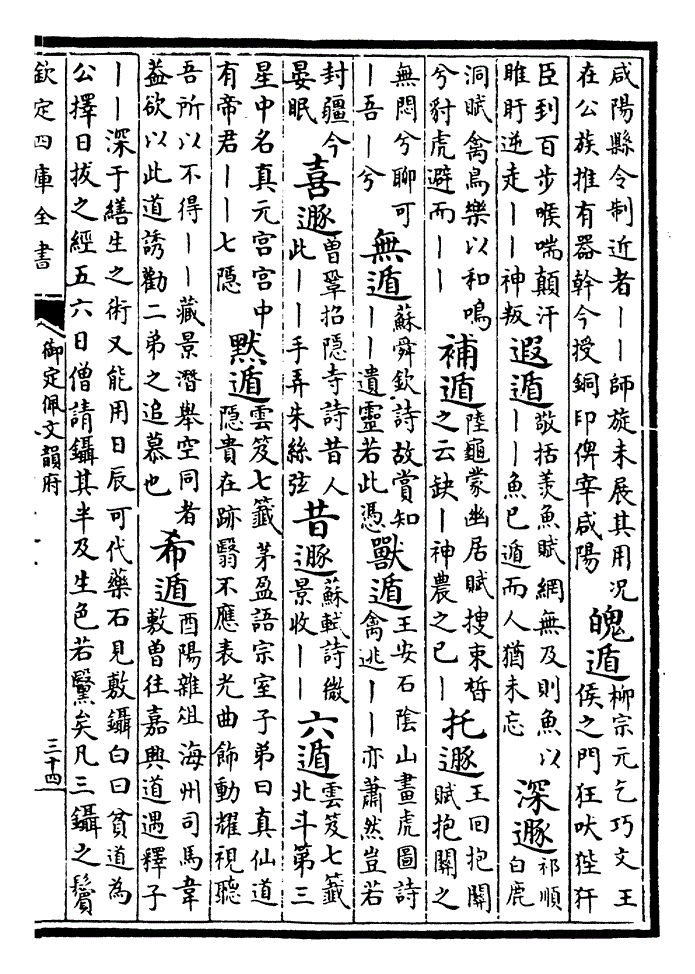 咸陽縣令制近者——師旋未展其用况
在公族推有器幹今授銅印俾宰咸陽
魄遁
柳宗元乞巧文王
侯之門狂吠狴犴
臣到百步喉喘顛汗
睢盱逆走——神叛
遐遁
敬括羨魚賦網無及則魚以
——魚已遁而人猶未忘
深遯
祁順
白鹿
洞賦禽鳥樂以和鳴
兮豺虎避而——
補遁
陸龜蒙幽居賦搜束晳
之云缺—神農之已—
托遯
王回抱關
賦抱關之
無悶兮聊可
—吾—兮
無遁
蘇舜欽詩故賞知
——遺靈若此憑
獸遁
王安石陰山畫虎圖詩
禽逃——亦蕭然豈若
封疆今
晏眠
喜遯
曾鞏招隠寺詩昔人
此——手弄朱絲弦
昔遯
蘇軾詩微
景收——
六遁
雲笈七籤
北斗第三
星中名真元宫宫中
有帝君——七隠
默遁
雲笈七籤茅盈語宗室子弟曰真仙道
隠貴在跡翳不應表光曲飾動耀視聽
吾所以不得——藏景潛舉空同者
葢欲以此道誘勸二弟之追慕也
希遁
酉陽雜俎海州司馬韋
敷曾往嘉興道遇釋子
——深于繕生之術又能用日辰可代藥石見敷鑷白曰貧道為
公擇日拔之經五六日僧請鑷其半及生色若黳矣凡三鑷之鬢
欽定四庫全書
御定佩文韻府
三十四